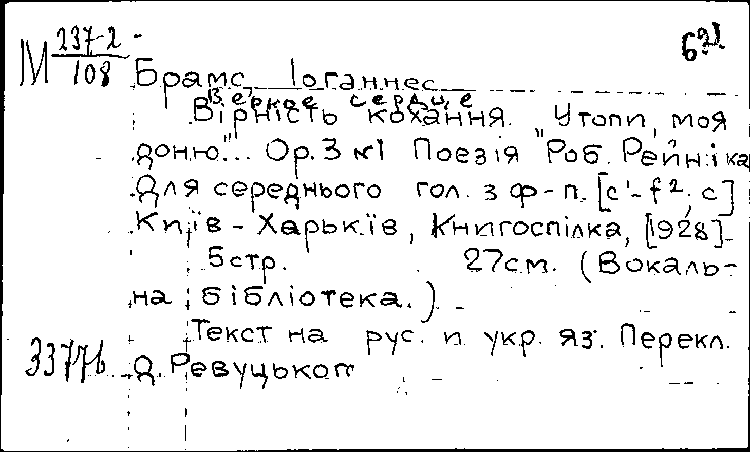 М 237-2/108
621
Брамс Іоганнес
Верное сердце
Вірність кохання. "Утопи, моя
доню"... Op. 3 №1 Поезія Роб. Рейніка
Для середнього гол. з ф-п. [c'-f²; c]
Київ - Харьків, Книгоспілка, [1928]
5стр. 27см. (Вокаль-
на бібліотека.)
Текст на рус. и укр. яз. Перекл.
33776 Д. Ревуцького